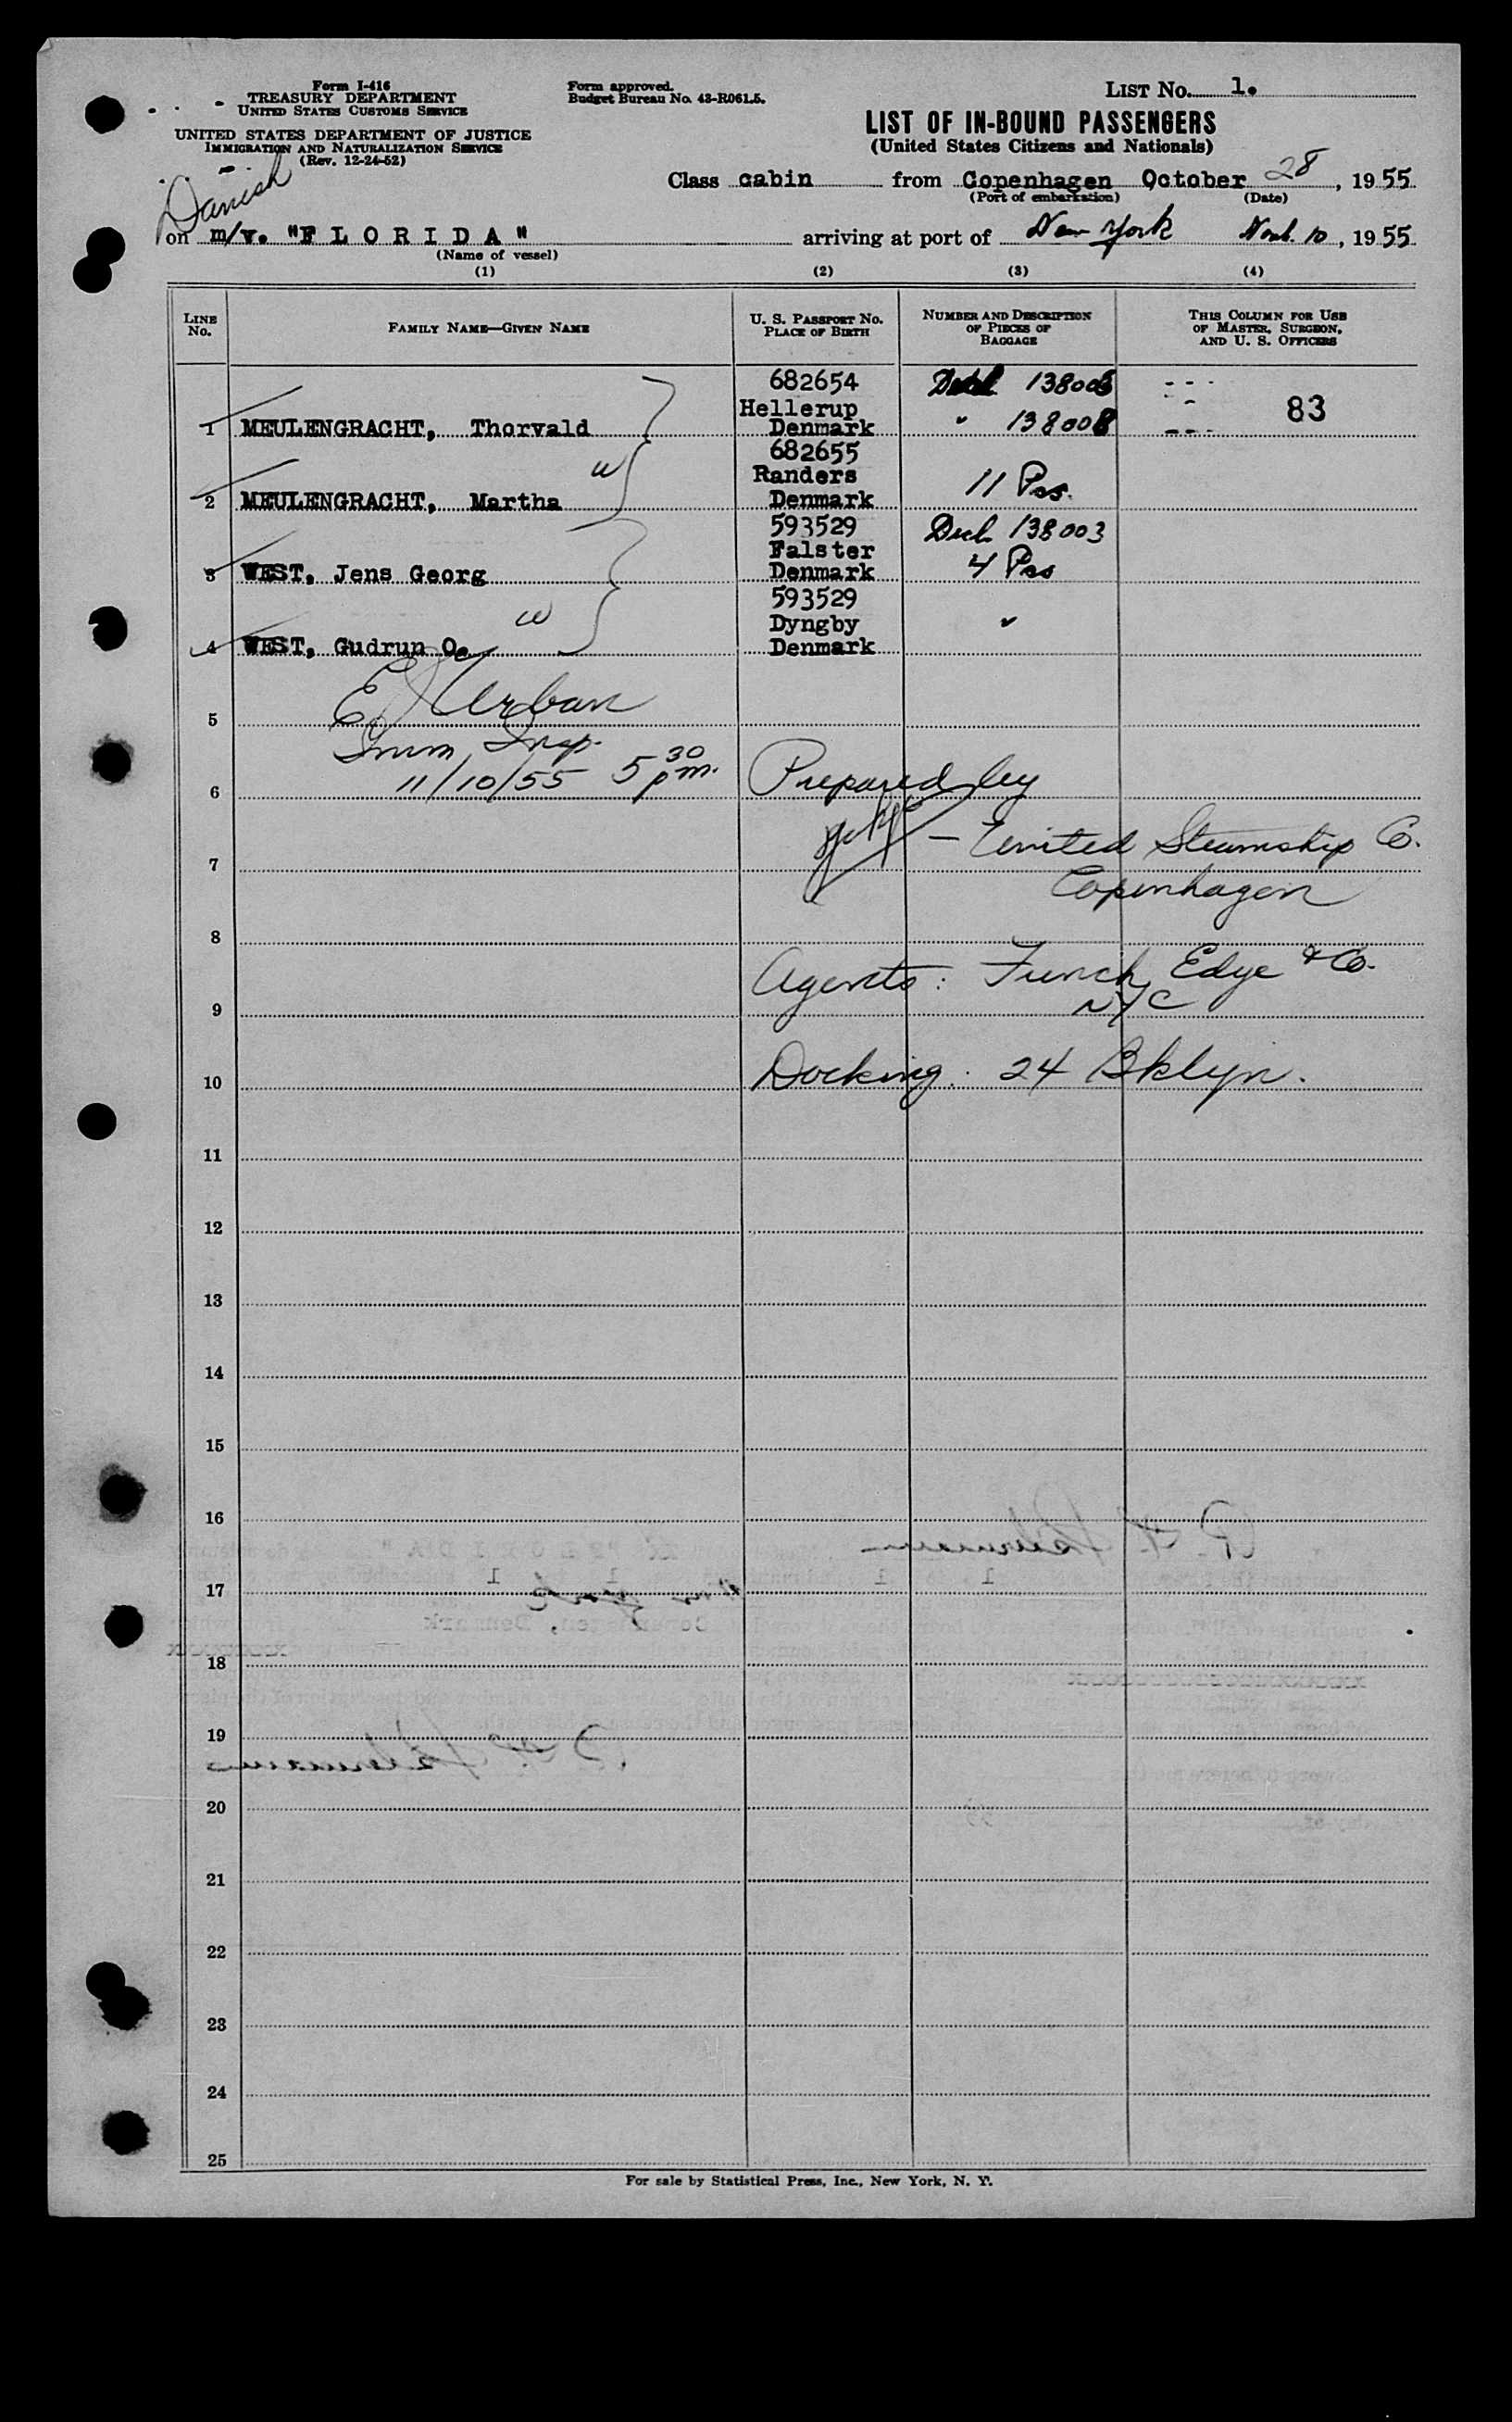 Form I-416
TREASURY DEPARTMENT
UNITED STATES CUSTOMS SERVICE
UNITED STATES DEPARTMENT OF JUSTICE
IMMIGRATION AND NATURALIZATION SERVICE
(Rev. 12-24-52)
Form approved.
Budget Bureau No. 43-R061.5.
LIST No. 1.
LIST OF IN-BOUND PASSENGERS
(United States Citizens and Nationals)
Class cabin from Copenhagen October 28, 1955
(Port of embarkation) (Date)
Danish
on m/v. "FLORIDA" arriving at port of New York Novb. 10, 1955
(Name of vessel)
(1) (2) (3) (4)
LINE No. FAMILY NAME—GIVEN NAME U. S. PASSPORT No. PLACE OF BIRTH NUMBER AND DESCRIPTION OF PIECES OF BAGGAGE THIS COLUMN FOR USE OF MASTER, SURGEON, AND U. S. OFFICERS
682654 138003
Hellerup 83
1 MEULENGRACHT, Thorvald Denmark " 138008
682655
W Randers 11 Pcs.
2 MEULENGRACHT, Martha Denmark
593529 Decl. 138003
Falster 4 Pcs
3 WEST, Jens Georg Denmark
593529
W Dyngby
4 WEST, Gudrun O. Denmark
E Urban
5
Imm Insp.
11/10/55 5 30 pm.
6 Prepared by
7 — United Steamship Co.
Copenhagen
8
Agents: Funch, Edye & Co.
9 NYC
10 Docking: 24 Bklyn.
11
12
13
14
15
16
17
18
19
20
21
22
23
24
25
For sale by Statistical Press, Inc., New York, N. Y.